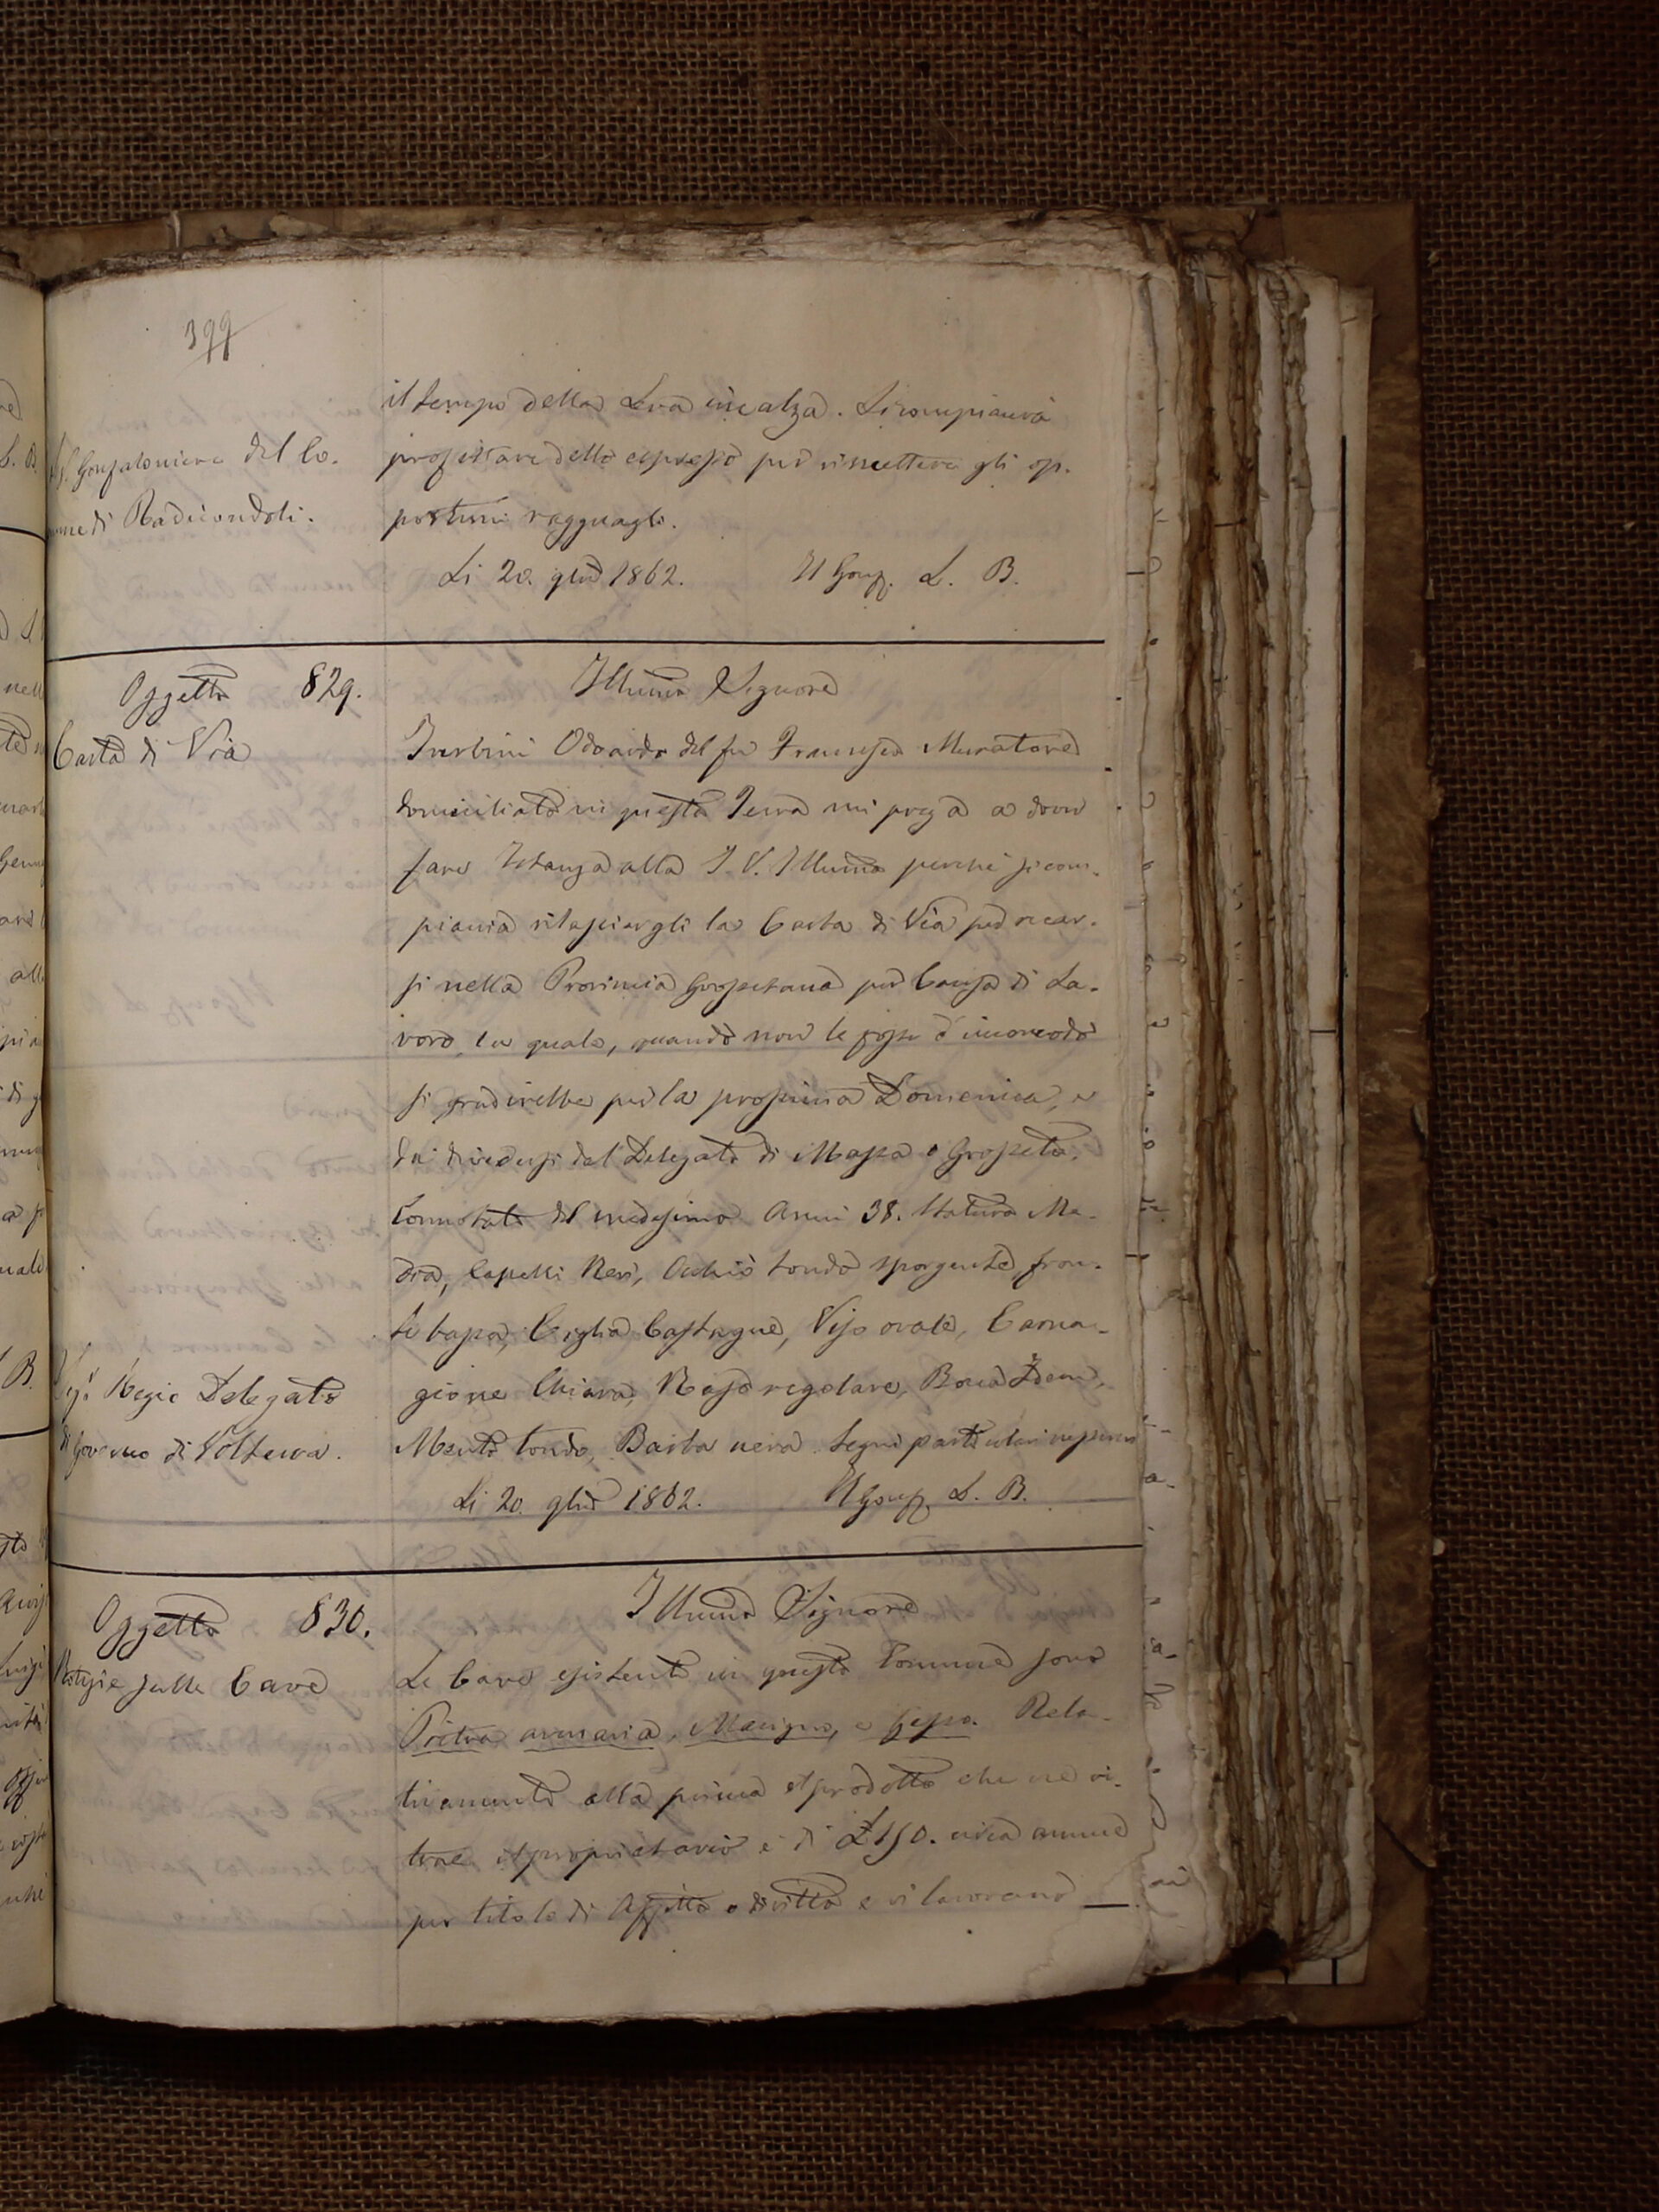 399
il tempo della Leva incalza. Si compiacerà
Sig. Gonfaloniere del Co-
mune di Radicondoli.
profittare dello espresso per rimettere gli op-
portuni ragguagli.
Li 20. 9bre 1862. Il Gonf. L. B.
Oggetto 829.
Carta di Via
Illumo Signore
Odoardo del fu Francesco Muratore
domiciliato in questa Terra mi prega a dover
fare Istanza alla S. V. Illuma perché si com-
piaccia rilasciargli la Carta di Via per recar-
si nella Provincia Grossetana per Causa di La-
voro, la quale, quando non le fosse d'incomodo
si gradirebbe per la prossima Domenica, e
da vedersi dal Delegato di Massa o Grosseto.
Connotati del medesimo Anni 38. Statura Me-
dia, Capelli Neri, Occhio tondo sporgente, fron-
te bassa, Ciglia Castagne, Viso ovale, Carna-
gione Chiara, Naso regolare, Bocca Idem,
Mento tondo, Barba nera. Segni particolari nessuno
Sig. Regio Delegato
di Governo di Volterra.
Li 20. 9bre 1862. Il Gonf. L. B.
Oggetto 830.
Notizie sulle Cave
Illumo Signore
Le Cave esistenti in questo Comune sono
Pietra arenaria, Macigno, e Gesso. Rela-
tivamente alla prima il prodotto che ne ri-
trae il proprietario è di £150. circa annue
per titolo di Affitto o diritto e vi lavorano